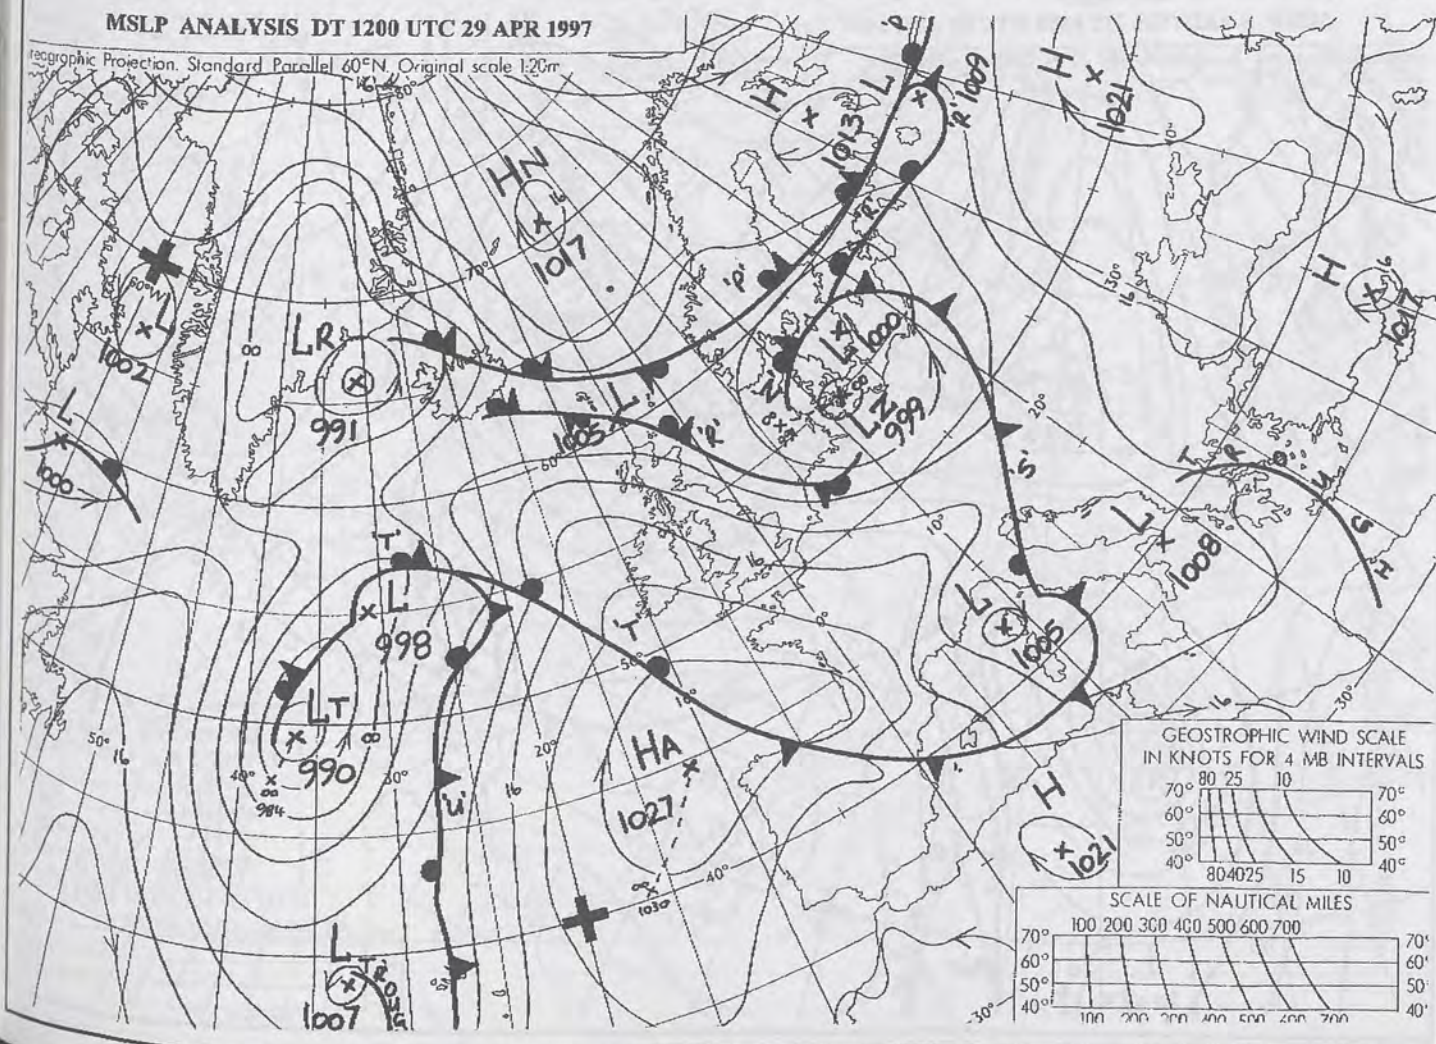 MSLP ANALYSIS DT 1200 UTC 29 APR 1997
reographic Projection. Standard Parallel 60°N. Original scale 1:20m
H
1013
L
'R' 1009
H
1021
HN
16
1017
'P'
'R'
H
16
1017
60°W
L
1002
LR
991
70°
L
1000
1005
L
'R'
L
1000
LN
999
N
30°
16
20°
'S'
TROUGH
60°
10°
L
1008
'T'
L
998
L
1005
'T'
0°
50°
10°
LT
990
984
40°
30°
'U'
50°
16
20°
16
HA
1027
1030
40°
H
1021
16
30°
L
1007
TROUG
30°
GEOSTROPHIC WIND SCALE
IN KNOTS FOR 4 MB INTERVALS
80 25 10
70° 70°
60° 60°
50° 50°
40° 40°
80 40 25 15 10
SCALE OF NAUTICAL MILES
100 200 300 400 500 600 700
70° 70°
60° 60'
50° 50'
40° 40'
100 200 300 400 500 600 700